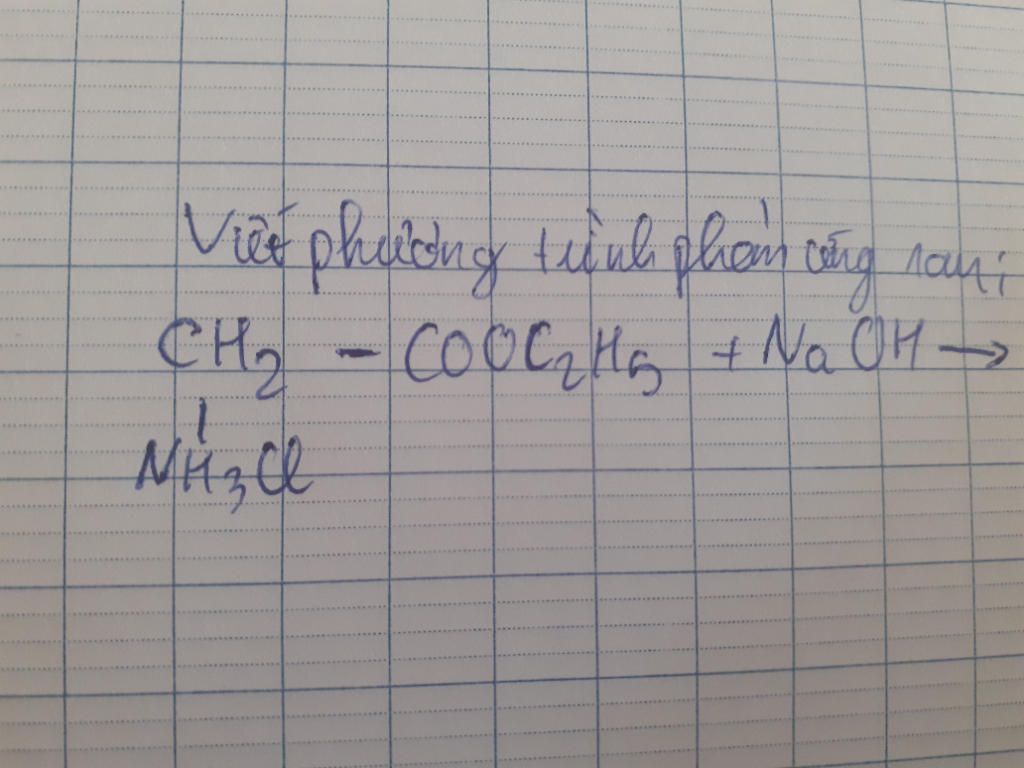 Viết phương trình phản ứng sau:
CH2 - COOC2H5 + NaOH →
|
NH3Cl